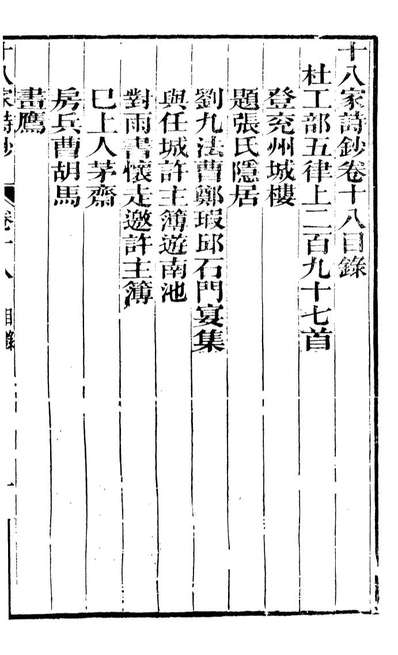 十八家詩鈔卷十八目錄
杜工部五律上二百九十七首
登兗州城樓
題張氏隱居
劉九法曹鄭瑕邱石門宴集
與任城許主簿遊南池
對雨書懷走邀許主簿
巳上人茅齋
房兵曹胡馬
畫鷹
十八家詩鈔 卷十八 目錄 一